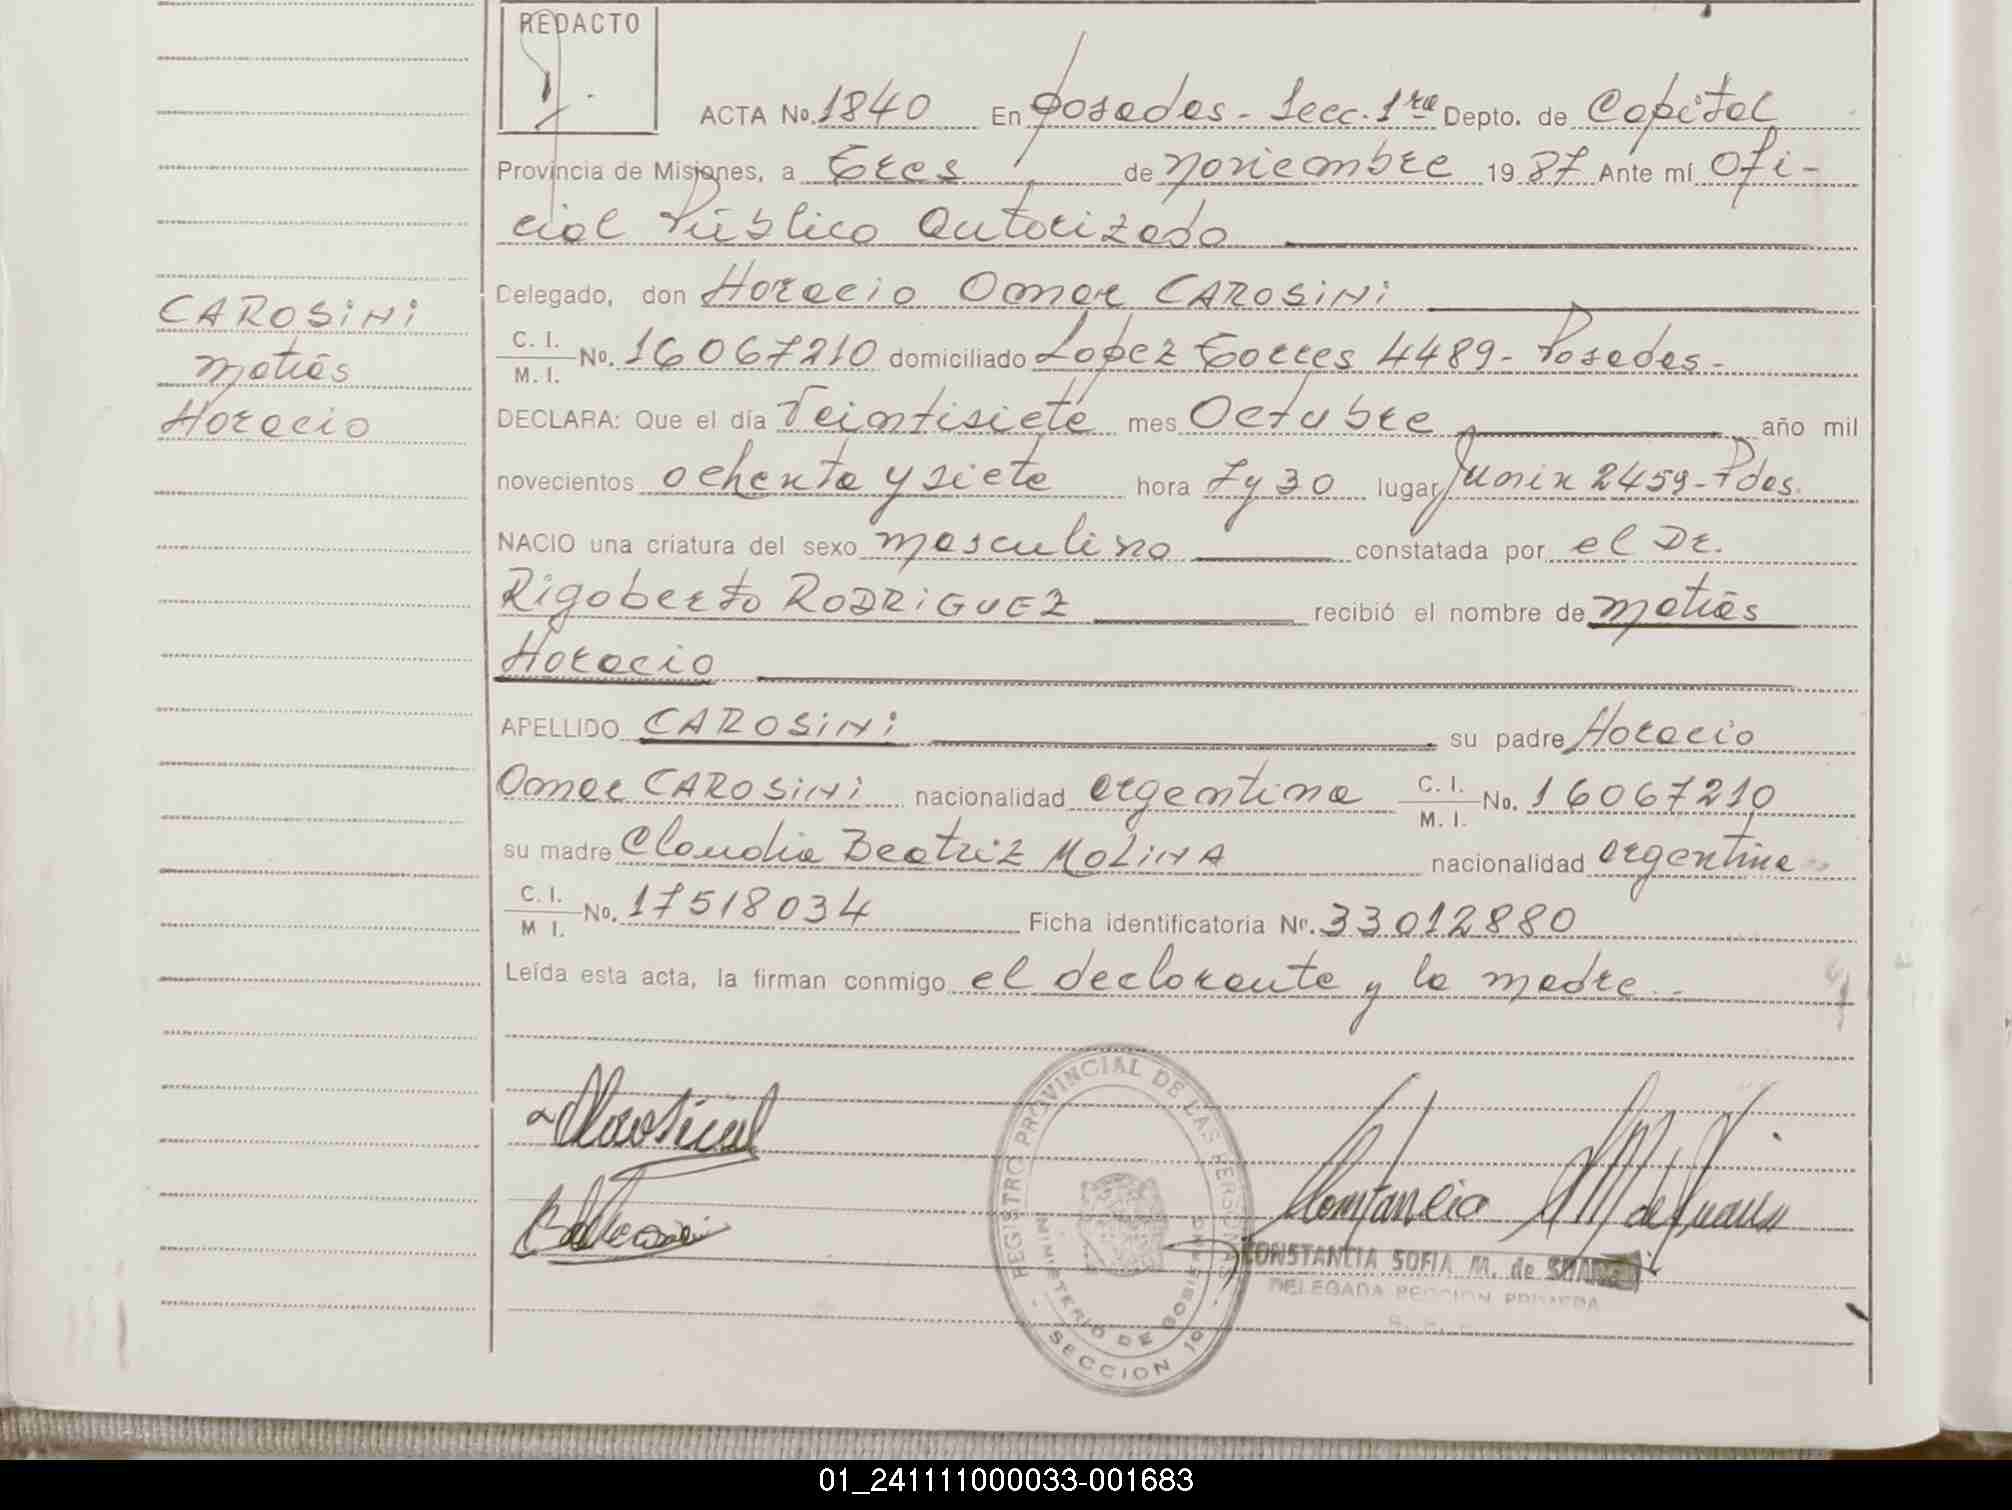 REDACTO
ACTA No. 1840 En Posadas - Secc. 1ra Depto. de Capital
Provincia de Misiones, a Tres de noviembre 19 87 Ante mí Ofi-
cial Público Autorizado
Delegado, don Horacio Omar CAROSINI
CAROSINI
Matías
Horacio
C. I. M. I. No. 16067210 domiciliado Lopez Torres 4489 - Posadas -
DECLARA: Que el día Veintisiete mes Octubre año mil
novecientos ochenta y siete hora 7 y 30 lugar Junin 2459 - Pdas.
NACIO una criatura del sexo masculino constatada por el Dr.
Rigoberto RODRIGUEZ recibió el nombre de Matías
Horacio
APELLIDO CAROSINI su padre Horacio
Omar CAROSINI nacionalidad argentina C. I. M. I. No. 16067210
su madre Claudia Beatriz MOLINA nacionalidad argentina
C. I. M I. No. 17518034 Ficha identificatoria No. 33012880
Leída esta acta, la firman conmigo el declarante y la madre..
REGISTRO PROVINCIAL DE LAS PERSONAS
MINISTERIO DE GOBIERNO
- SECCION 1a -
CONSTANCIA SOFIA M. de
DELEGADA SECCION PRIMERA
01_241111000033-001683